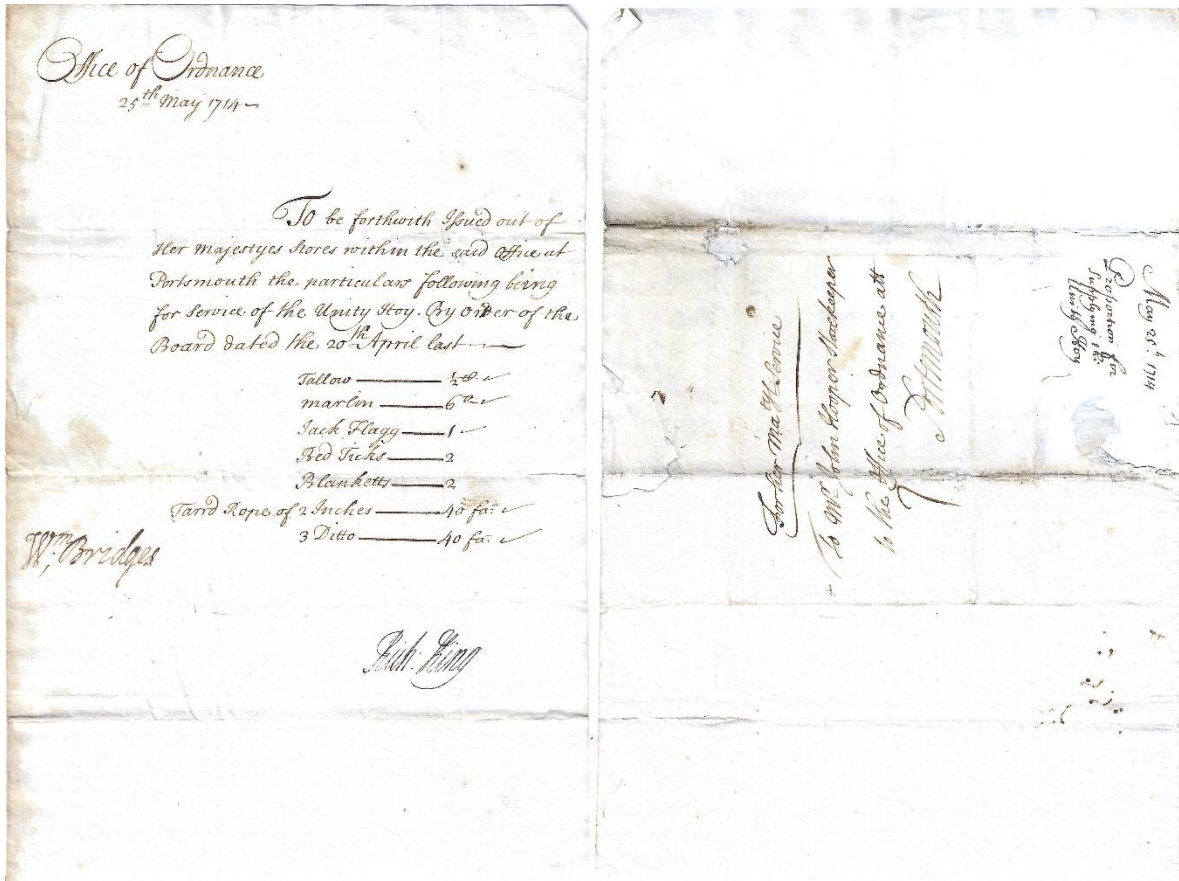 Office of Ordnance
25th May 1714
To be forthwith Issued out of
Her Majestyes Stores within the said Office at
Portsmouth the particulars following being
for Service of the Unity Hoy. By order of the
Board dated the 20th April last
Tallow 1/2
Marlin 6
Jack Flagg 1
Bed Ticks 2
Blanketts 2
Tarrd Rope of 2 Inches 40 fa:
3 Ditto 40 fa:
Wm Bridges
Rich: King
For her Matys Service
To Mr John Hooper Storekeeper
to the Office of Ordnance att
Portsmouth
May 25th 1714
Proportion for
Supplying the
Unity Hoy